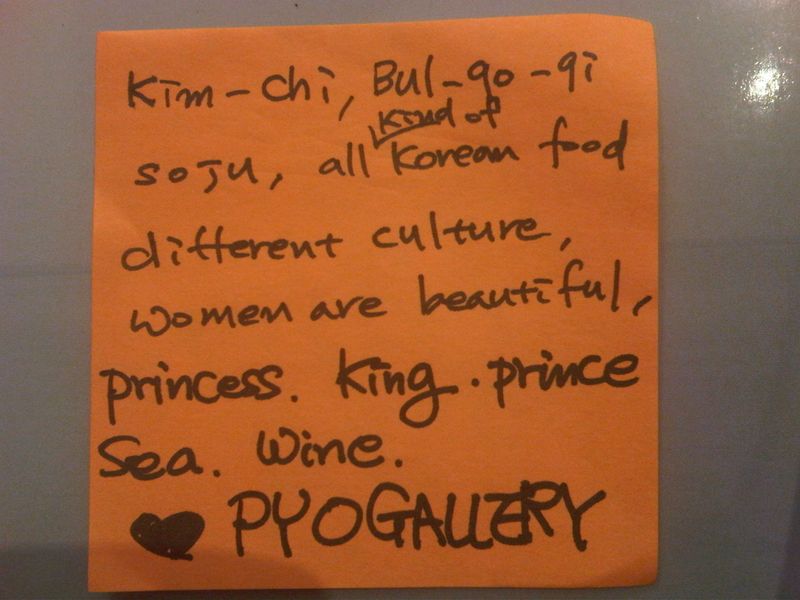 Kim-chi, Bul-go-gi
kind of
soju, all Korean food
different culture,
women are beautiful,
princess. King. prince
Sea. Wine.
♥ PYOGALLERY